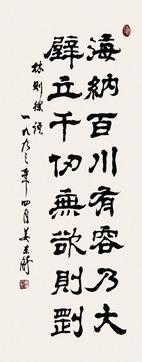 海納百川有容乃大
壁立千仞無欲則剛
林則徐語
一九九三年四月姜東舒